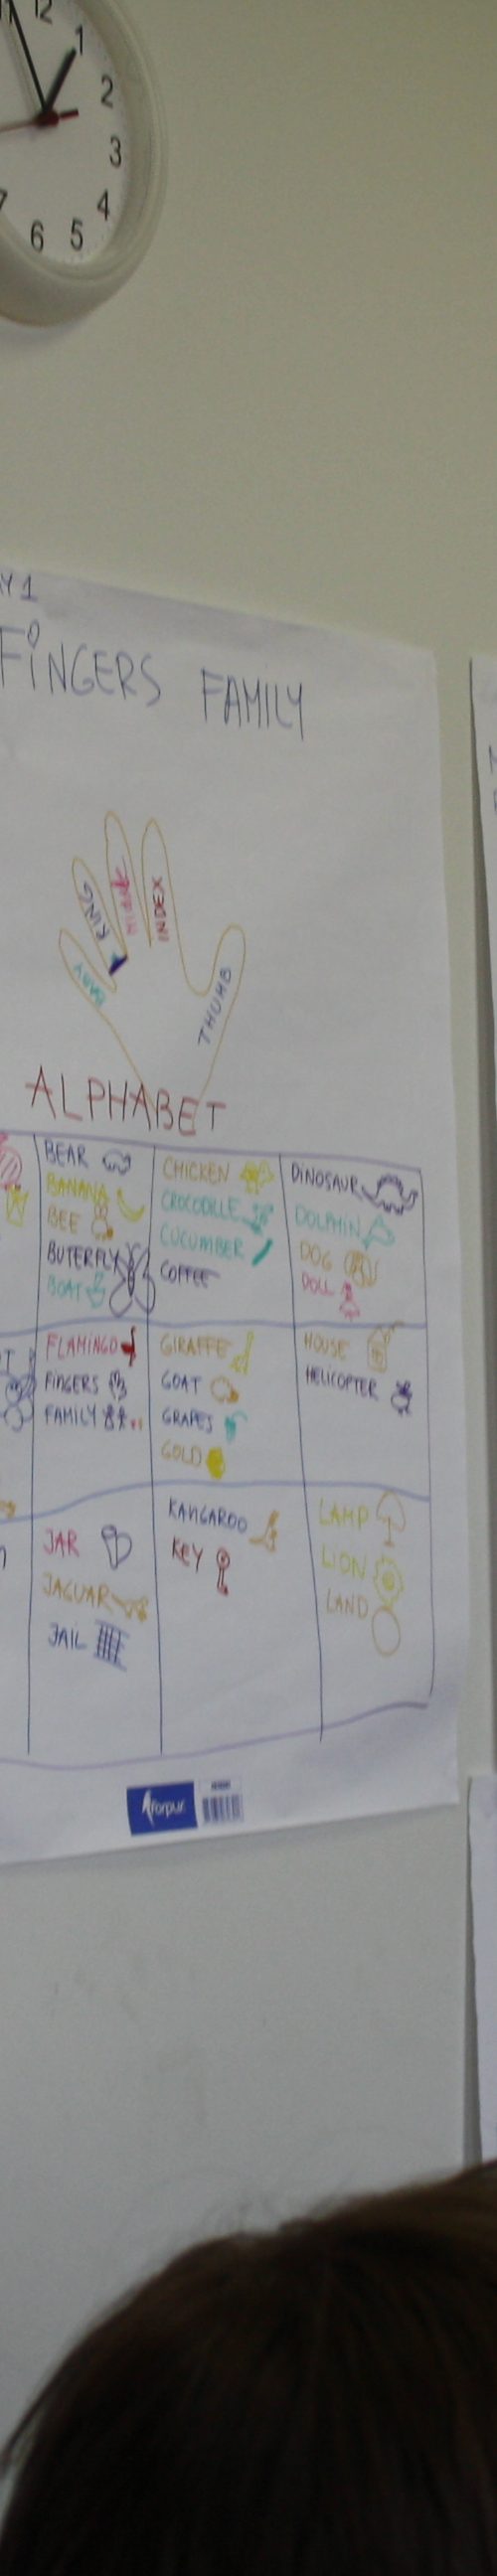 12
1
2
3
4
5
6
Y 1
FINGERS FAMILY
BABY
RING
MIDDLE
INDEX
THUMB
ALPHABET
BEAR
BANANA
BEE
BUTERFLY
BOAT
CHICKEN
CROCODILE
CUCUMBER
COFFEE
DINOSAUR
DOLPHIN
DOG
DOLL
FLAMINGO
FINGERS
FAMILY
GIRAFFE
GOAT
GRAPES
GOLD
HOUSE
HELICOPTER
JAR
JAGUAR
JAIL
KANGAROO
KEY
LAMP
LION
LAND
forpus